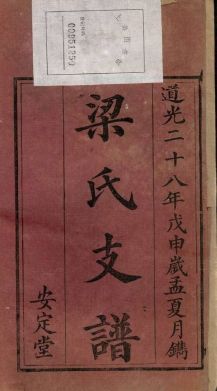 道光二十八年戊申歲孟夏月鐫
梁氏支譜
安定堂